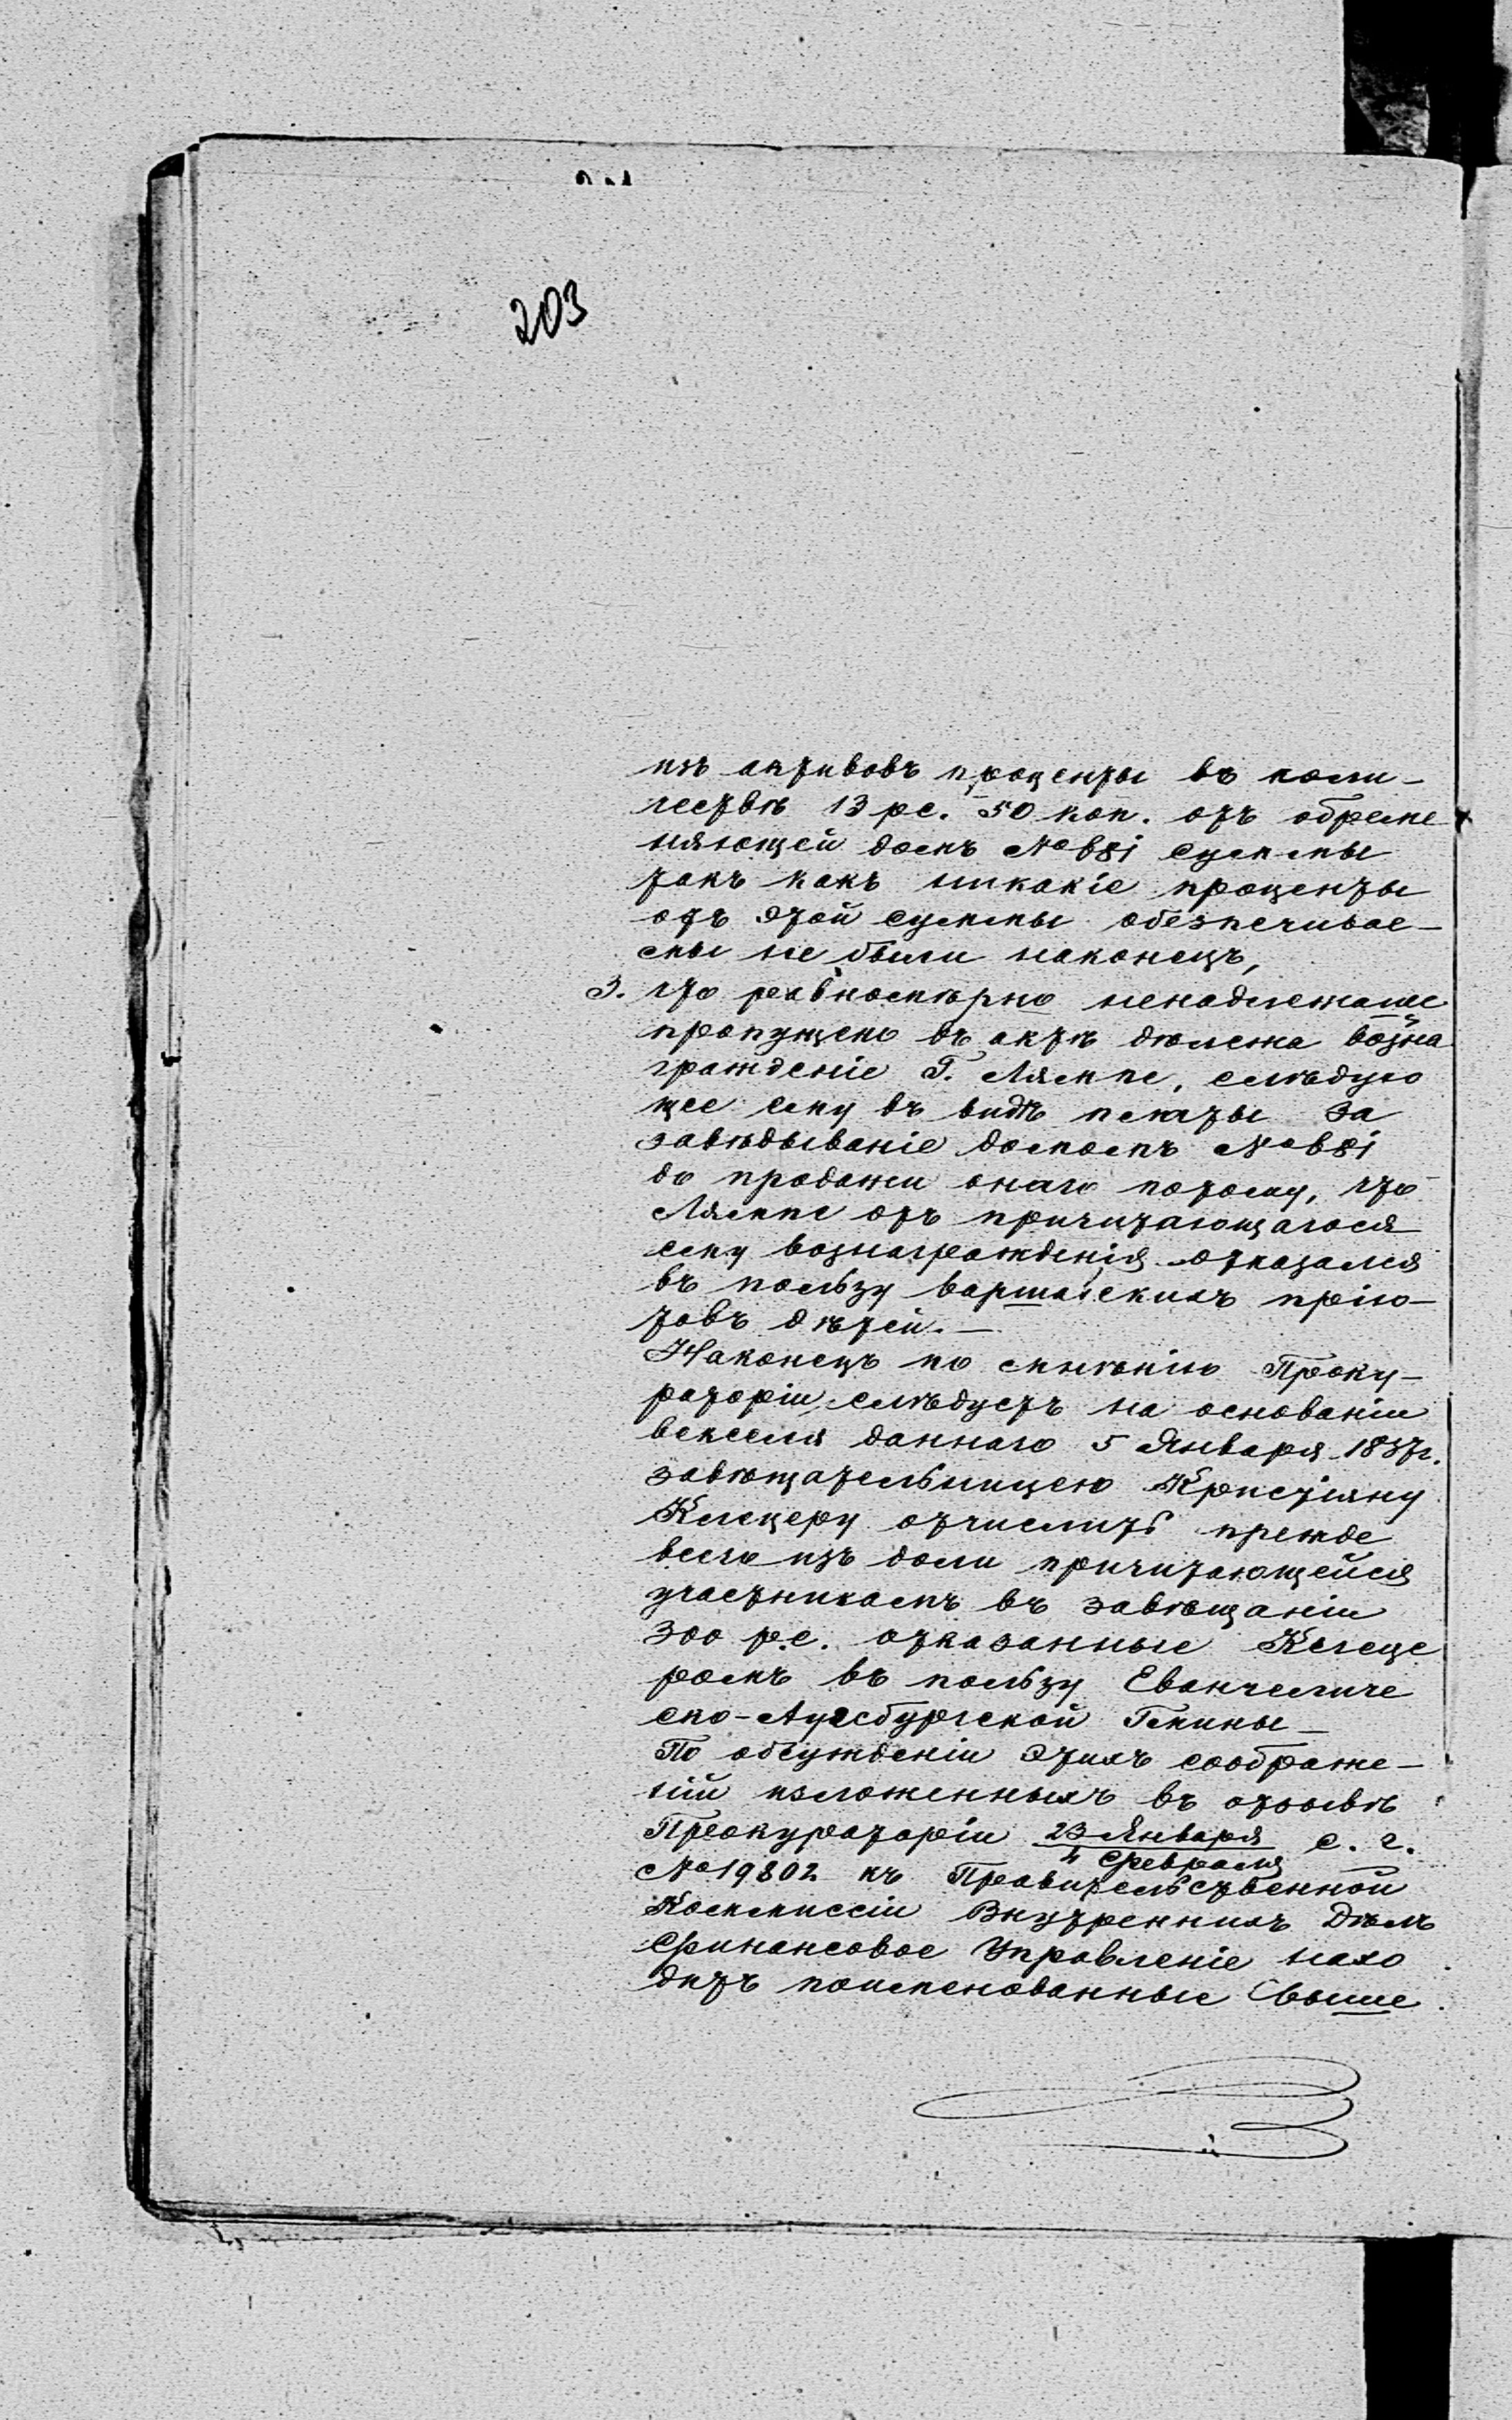 203
изъ активовъ проценты въ коли-
чествѣ 13 рс. 50 коп. отъ обреме
няющей домъ № 681 суммы
такъ какъ никакіе проценты
отъ этой суммы обезпечивае-
мы не были наконецъ,
3. что равномѣрно ненадлежаще
пропущено въ актѣ дѣлежа возна
гражденіе Г. Лямпе, слѣдую
щее ему въ видѣ платы за
завѣдываніе домомъ № 681
до продажи онаго потому, что
Лямпе отъ причитающагося
ему вознагражденія отказался
въ пользу варшавскихъ прію-
товъ дѣтей.—
Наконецъ по мнѣнію Проку-
раторіи, слѣдуетъ на основаніи
векселя даннаго 5 Января 1837г.
завѣщательницею Кристіяну
Клецеру отчислить прежде
всего изъ доли причитающейся
участникамъ въ завѣщаніи
300 р.с. отказанные Клеце
ромъ въ пользу Евангеличе
ско-Аугсбургской Гмины—
По обсужденіи этихъ соображе-
ній изложенныхъ въ отзывѣ
Прокураторіи 23 Января / 4 Февраля с. г.
№ 19802 къ Правительственной
Коммиссіи Внутреннихъ Дѣлъ
Финансовое Управленіе нахо
дитъ поименованные свыше